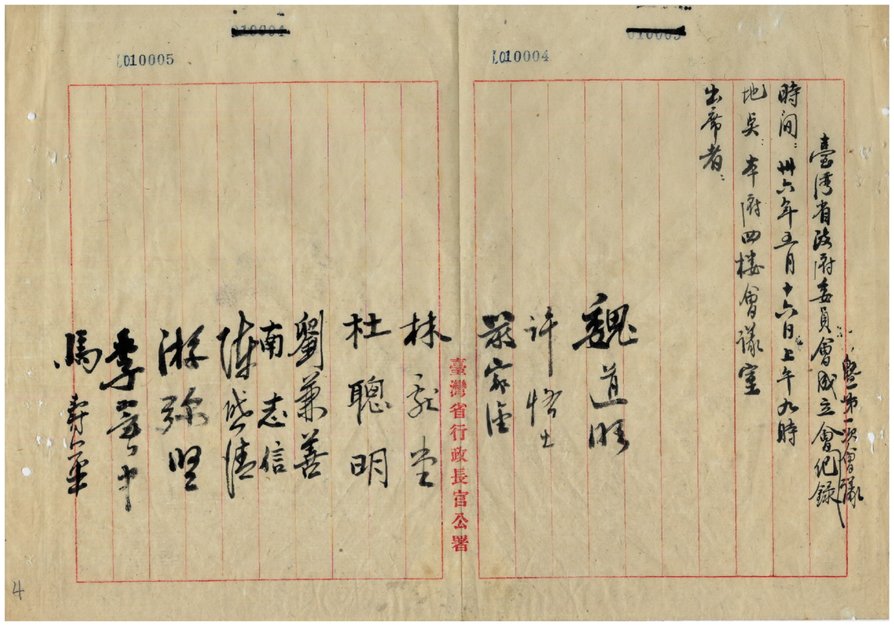 L010004
L010005
臺湾省政府委員會成立會紀錄
暨第一次會議
時间:卅六年五月十六日上午九時
地奌:本府四楼會議室
出席者:
魏道明
許恪士
嚴家淦
臺灣省行政長官公署
林献堂
杜聰明
劉兼善
南志信
陳啓清
游弥堅
李翼中
馬壽華
4